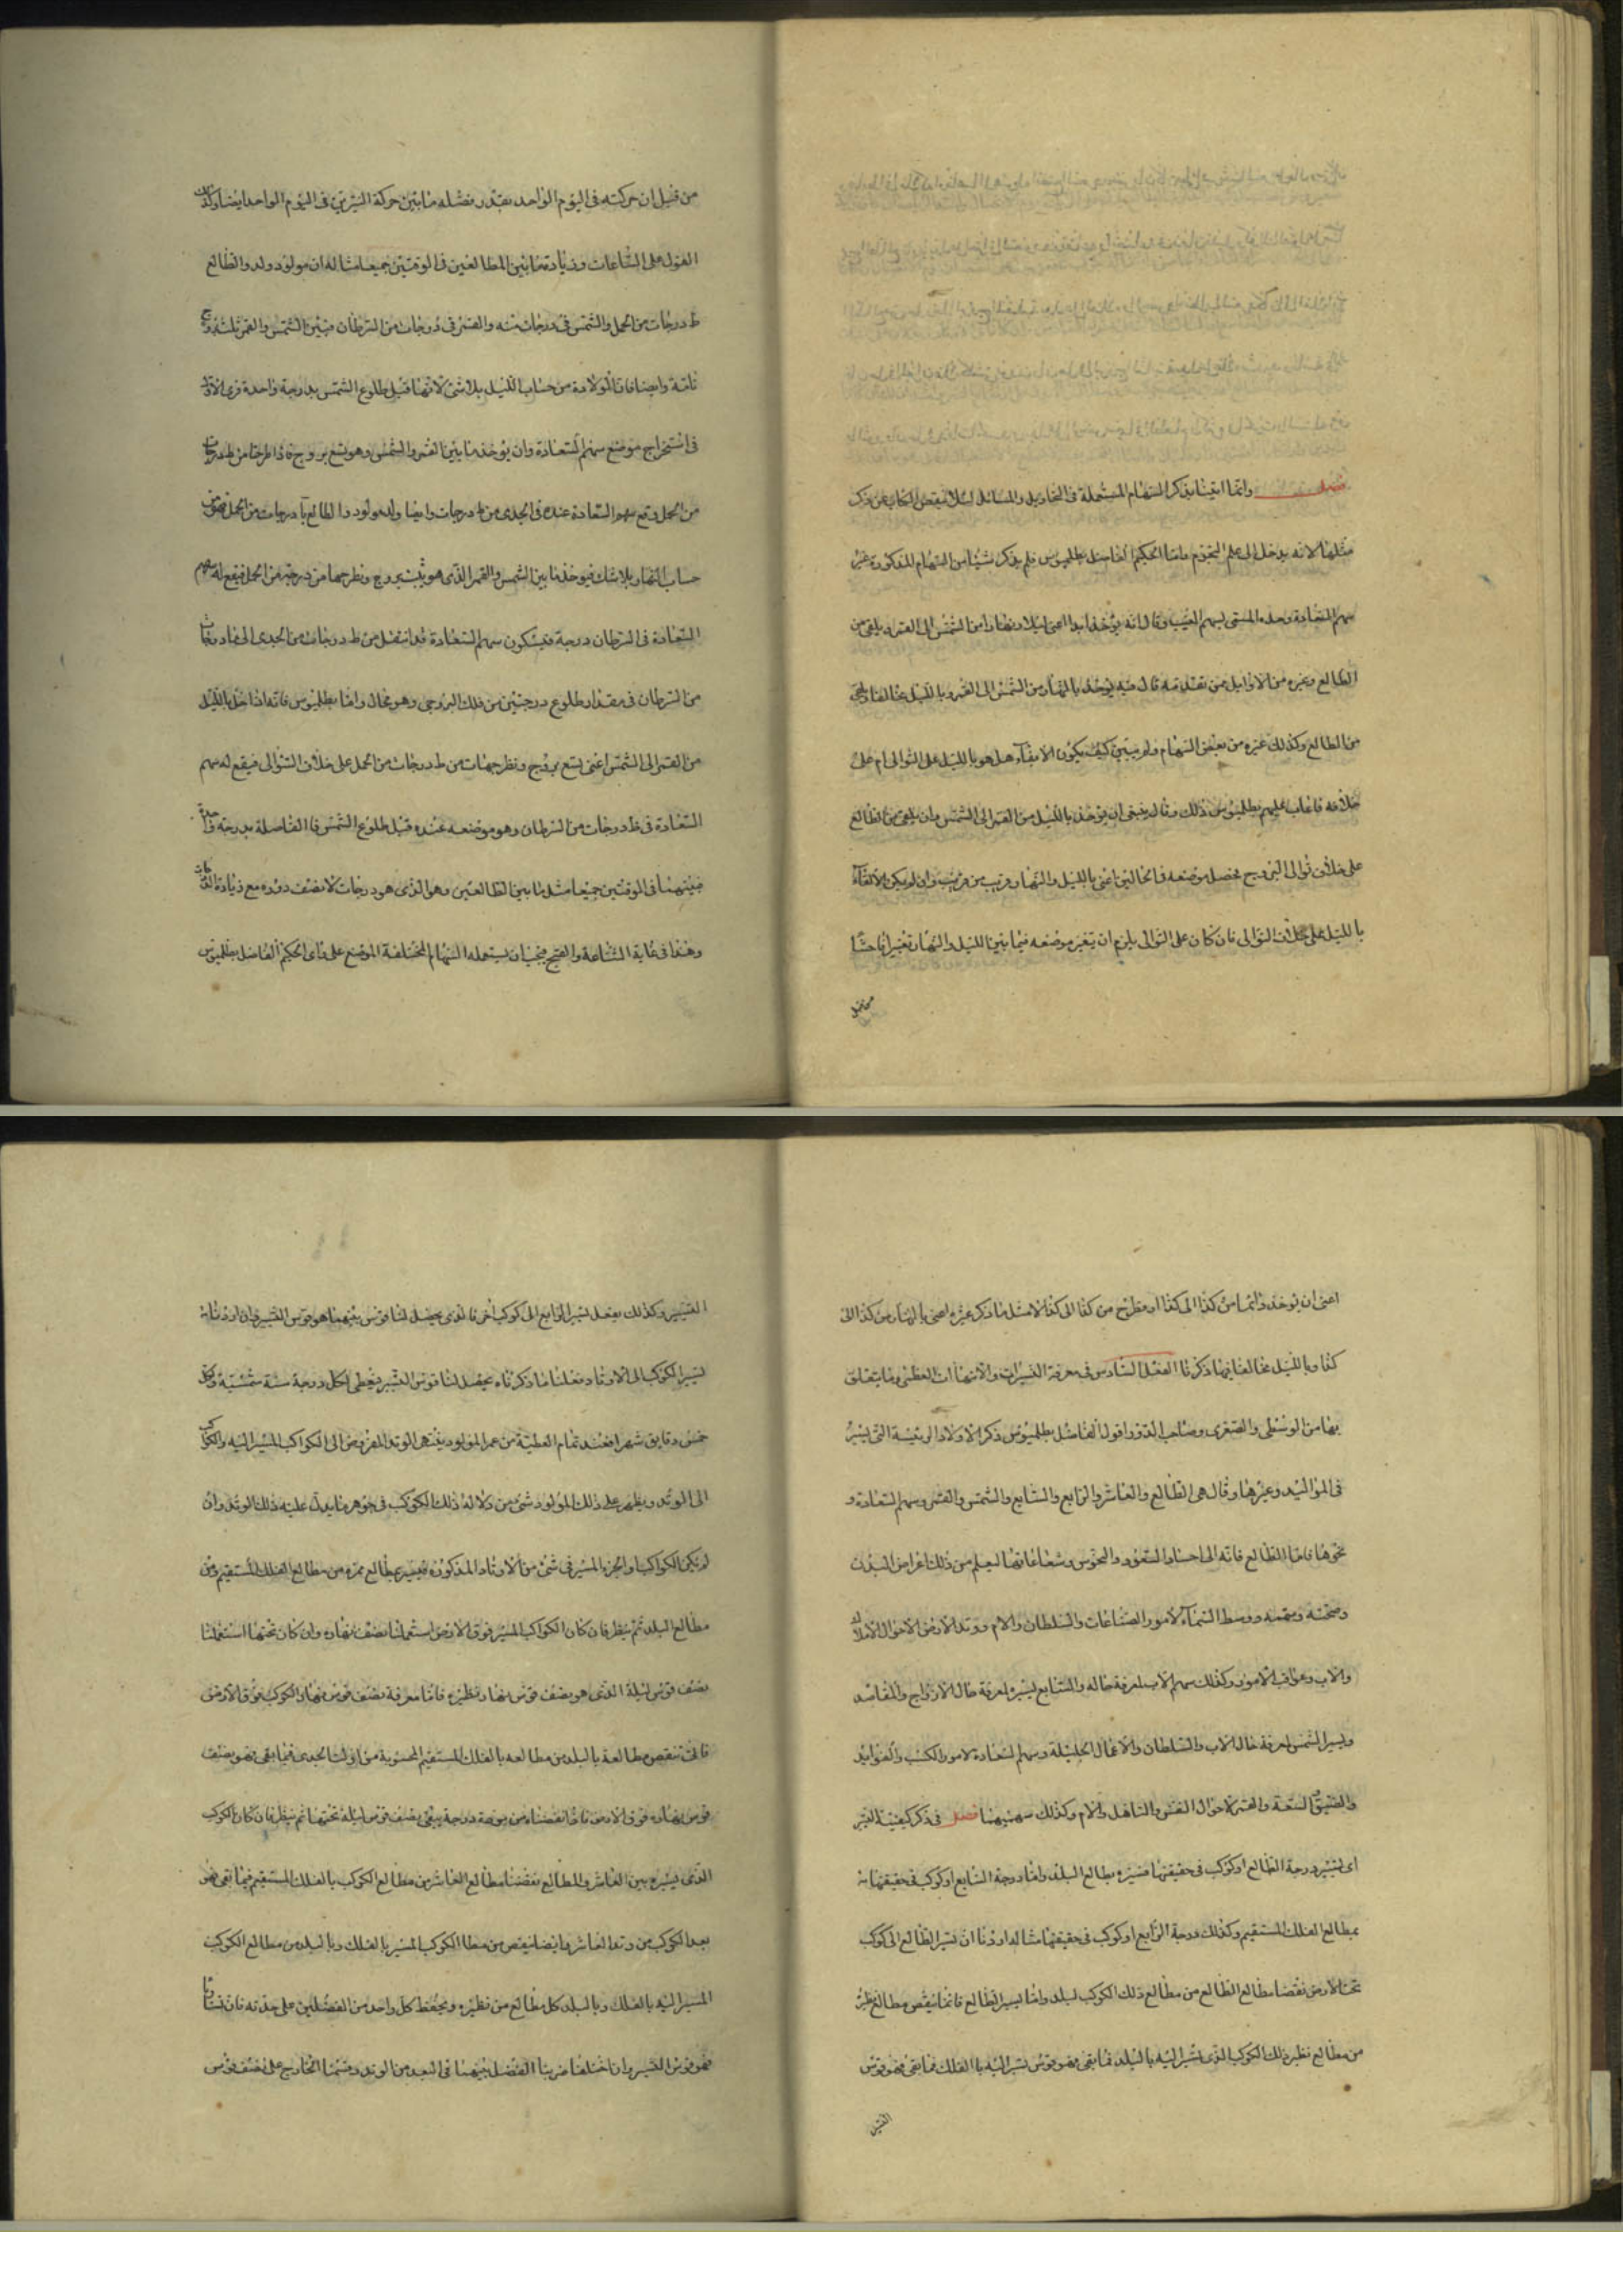 فصل وانما اتينا بذكر السهام المستعملة في التحاويل والمسائل لئلا ينقص الكتاب عن ذكر
مثلها لانه يدخل الى علم النجوم واما الحكيم الفاضل بطلميوس فلم يذكر شيئا من السهام المذكورة غير
سهم السعادة وحده المسمى بسهم الغيب وقال انه يؤخذ ابدا اعني ليلا ونهارا من الشمس الى القمر ويلقى من
الطالع وغيره من الاوايل ممن تقدمه قال فيه يوخذ بالنهار من الشمس الى القمر وبالليل مخالفا ويلقى
من الطالع وكذلك غيره من بعض السهام ولم يتبين كيف يكون الابقاء هل هو بالليل على التوالي ام على
خلافه فاعاب عليهم بطلميوس ذلك وقال ينبغي ان يؤخذ بالليل من القمر الى الشمس وان يلقى من الطالع
على خلاف توالي البروج يحصل موضعه في الحالتين اعني بالليل والنهار قريب من قريب وان لم يكن الالقاء
بالليل على خلاف التوالي فان كان على التوالي يلزم ان يتغير موضعه فيما بين الليل والنهار تغييرا فاحشا
من قبل
من قبل ان حركته في اليوم الواحد بقدر فضله ما بين حركة النيرين في اليوم الواحد ايضا وكذلك
القول على الساعات وزيادة ما بين المطالعين في الوقتين جميعا مثاله ان مولود ولد والطالع
ط درجات من الحمل والشمس في درجات منه والقمر في درجات من السرطان فبين الشمس والقمر ثلثة بروج
تامة وايضا فان الولادة من حساب الليل بلا شئ لانها قبل طلوع الشمس بدرجة واحدة فرى الاول
في استخراج موضع سهم السعادة وان يؤخذ ما بين القمر والشمس وهو تسع بروج فاذا طرحنا من ط درجات
من الحمل وقع سهم السعادة عنده في الجدى من ط درجات وايضا ولد مولود والطالع يا درجات من الحمل فهو من
حساب النهار بلا شك فيوخذ ما بين الشمس والقمر الذى هو ثلث بروج ونطرحها من درجته من الحمل فيقع له سهم
السعادة في السرطان درجة فيسكون سهم السعادة قد انتقل من ط درجات من الجدى الى يا درجات
من السرطان في مقدار طلوع درجتين من فلك البروجى وهو محال واما بطلميوس فانه اذا اخذ بالليل
من القمر الى الشمس اعني تسع بروج ونطرحها من ط درجات من الحمل على خلاف التوالي فيقع له سهم
السعادة في ط درجات من السرطان وهو موضعه عنده قبل طلوع الشمس فا الفاصلة بدرجة
بينهما في الوقتين جميعا مثل ما بين الطالعين وهو الذى هو درجات لا نصف دوره مع زيادة
وهذا في غاية الشناعة والقبح فيجب ان يستعمله السهام المختلفة الموضع على راى الحكيم الفاضل بطلميوس
اعني ان يؤخذ دائما من كذا الى كذا او مطرح من كذا الى كذا لا مثل ما ذكر غيره اعني بالنهار من كذا الى
كذا وبالليل مخالفا فيما ذكرنا الفصل السادس في معرفة التسيرات والانتهاات العظمى وما يتعلق
بها من الوسطى والصغرى وصاحب الدور اقول الفاضل بطلميوس ذكر الاولاد الرئيسة التي يسير
في المواليد وغيرها وقال هي الطالع والعاشر والرابع والسابع والشمس والقمر وسهم السعادة و
نحوها فاما الطالع فانه الى اجساد السعود والنحوس وشعاعاتها ليعلم من ذلك اعراض البدن
وصحته وسقمه ووسط السماء لامور الصناعات والسلطان والام ووتد الارض لاحوال الاملاك
والاب وعواقب الامور وكذلك سهم الاب لمعرفة حاله والسابع ليسره لمعرفة حال الازواج والمفاسد
ويسير الشمس لمعرفة حال الاب والسلطان والاعمال الجليلة وسهم السعادة لامور الكسب والفوايد
والضيق والسعة والقمر لاحوال النفس والتاهل والام وكذلك سهميهما فصل في ذكر كيفية التسير
اي لتسير درجة الطالع او كوكب في حقيقتها فسيره بطالع البلد واما درجة السابع او كوكب في حقيقتها فا
بمطالع الفلك المستقيم وكذلك درجة الرابع او كوكب في حقيقتها مثاله اردنا ان نسير الطالع الى كوكب
تحت الارض نقصنا مطالع الطالع من مطالع ذلك الكوكب لبلد واما ليسير الطالع فانما ينقص مطالع نظير
من مطالع نظير ذلك الكوكب الذى نسير اليه بالبلد فما بقى فهو قوس تسير اليه بالفلك فما بقى فهو قوس
التسير
التسيير وكذلك نفعل لتسير الرابع الى كوكب اخر فا لذى يحصل لنا قوس بينهما هو قوس التسير وان اردنا
لتسير الكوكب الى الاوتاد فعلنا ما ذكرناه يحصل لنا قوس التسير فيعطى لكل درجة سنة شمسية ولكل
خمس دقايق شهرا فعند تمام العطية من عمر المولود ينتهى الوتد المفروض الى الكواكب المسير اليه والكوكب
الى الوتد ويظهر على ذلك المولود شئ من دلالة ذلك الكوكب في جوهر ما يدل عليه ذلك الوتد وان
لم يكن الكواكب او الجزء المسير في شئ من الاوتاد المذكورة فيسير بمطالع ممره من مطالع الفلك المستقيم ومن
مطالع البلد ثم ننظر فان كان الكواكب المسير فوق الارض استعملنا نصف نهاره وان كان تحتها استعملنا
نصف قوس ليله الذى هو نصف قوس نهار نظيره فاما معرفة نصف قوس نهار الكوكب فوق الارض
فانت تنقص مطالعه بالبلد من مطالعه بالفلك المستقيم المحسوبة من اول الجدى فما بقى فهو نصف
قوس نهاره فوق الارض فاذا نقصناه من درجة يبقى نصف قوس ليله تحتها ثم ننظر فان كان الكوكب
الذى يسيره بين العاشر والطالع نقصنا مطالع العاشر من مطالع الكوكب بالفلك المستقيم فما بقى فهو
بعد الكوكب من وتد العاشر وايضا ينقص من مطالع الكوكب المسير بالفلك وبالبلد من مطالع الكوكب
المسير اليه بالفلك وبالبلد كل مطالع من نظيره ويحفظ كل واحد من الفضلين على حدته فان تساويا
فهو قوس التسير وان اختلفا ضربنا الفضل بينهما في البعد من الوتد وقسمنا الخارج على نصف قوس